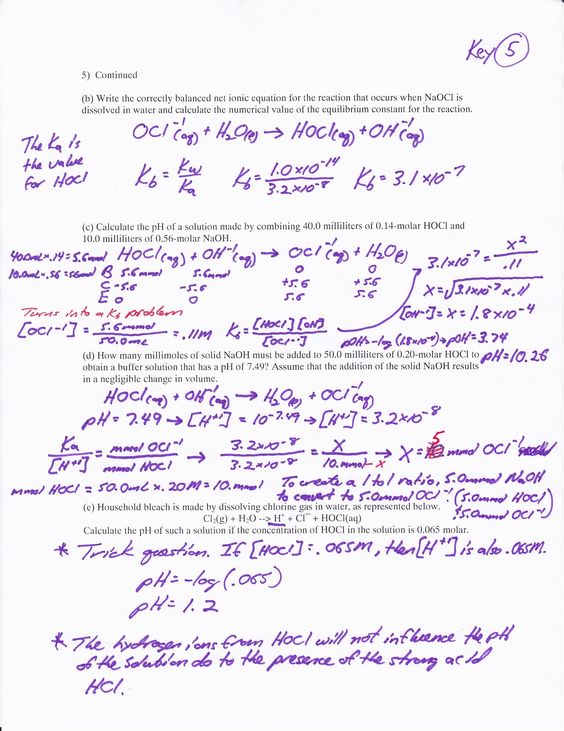 Key 5
5) Continued
(b) Write the correctly balanced net ionic equation for the reaction that occurs when NaOCl is
dissolved in water and calculate the numerical value of the equilibrium constant for the reaction.
OCl⁻¹(aq) + H₂O(l) → HOCl(aq) + OH⁻(aq)
The Ka is
the value
for HOCl
Kb = Kw/Ka Kb = 1.0x10⁻¹⁴/3.2x10⁻⁸ Kb = 3.1x10⁻⁷
(c) Calculate the pH of a solution made by combining 40.0 milliliters of 0.14-molar HOCl and
10.0 milliliters of 0.56-molar NaOH.
40.0mL x .14 = 5.6mmol HOCl(aq) + OH⁻¹(aq) → OCl⁻¹(aq) + H₂O(l)
10.0mL x .56 = 5.6mmol B 5.6mmol 5.6mmol 0 0
C -5.6 -5.6 +5.6 +5.6
E 0 0 5.6 5.6
3.1x10⁻⁷ = x²/.11
x = √3.1x10⁻⁷ x .11
[OH⁻¹] = x = 1.8x10⁻⁴
Turns into a Kb problem
[OCl⁻¹] = 5.6mmol/50.0mL = .11M Kb = [HOCl][OH]/[OCl⁻¹] pOH = -log(1.8x10⁻⁴) → pOH = 3.74
pH = 10.26
(d) How many millimoles of solid NaOH must be added to 50.0 milliliters of 0.20-molar HOCl to
obtain a buffer solution that has a pH of 7.49? Assume that the addition of the solid NaOH results
in a negligible change in volume.
HOCl(aq) + OH⁻¹(aq) → H₂O(l) + OCl⁻¹(aq)
pH = 7.49 → [H⁺¹] = 10⁻⁷·⁴⁹ → [H⁺¹] = 3.2x10⁻⁸
Ka/[H⁺¹] = mmol OCl⁻¹/mmol HOCl → 3.2x10⁻⁸/3.2x10⁻⁸ = x/10.mmol-x → x = 5 mmol OCl⁻¹
mmol HOCl = 50.0mL x .20M = 10.mmol To create a 1 to 1 ratio, 5.0mmol NaOH
to convert to 5.0mmol OCl⁻¹ (5.0mmol HOCl)
+5.0mmol OCl⁻¹)
(e) Household bleach is made by dissolving chlorine gas in water, as represented below.
Cl₂(g) + H₂O --> H⁺ + Cl⁻ + HOCl(aq)
Calculate the pH of such a solution if the concentration of HOCl in the solution is 0.065 molar.
* Trick question. If [HOCl] = .065M, then [H⁺¹] is also .065M.
pH = -log(.065)
pH = 1.2
* The hydrogen ions from HOCl will not influence the pH
of the solution do to the presence of the strong acid
HCl.